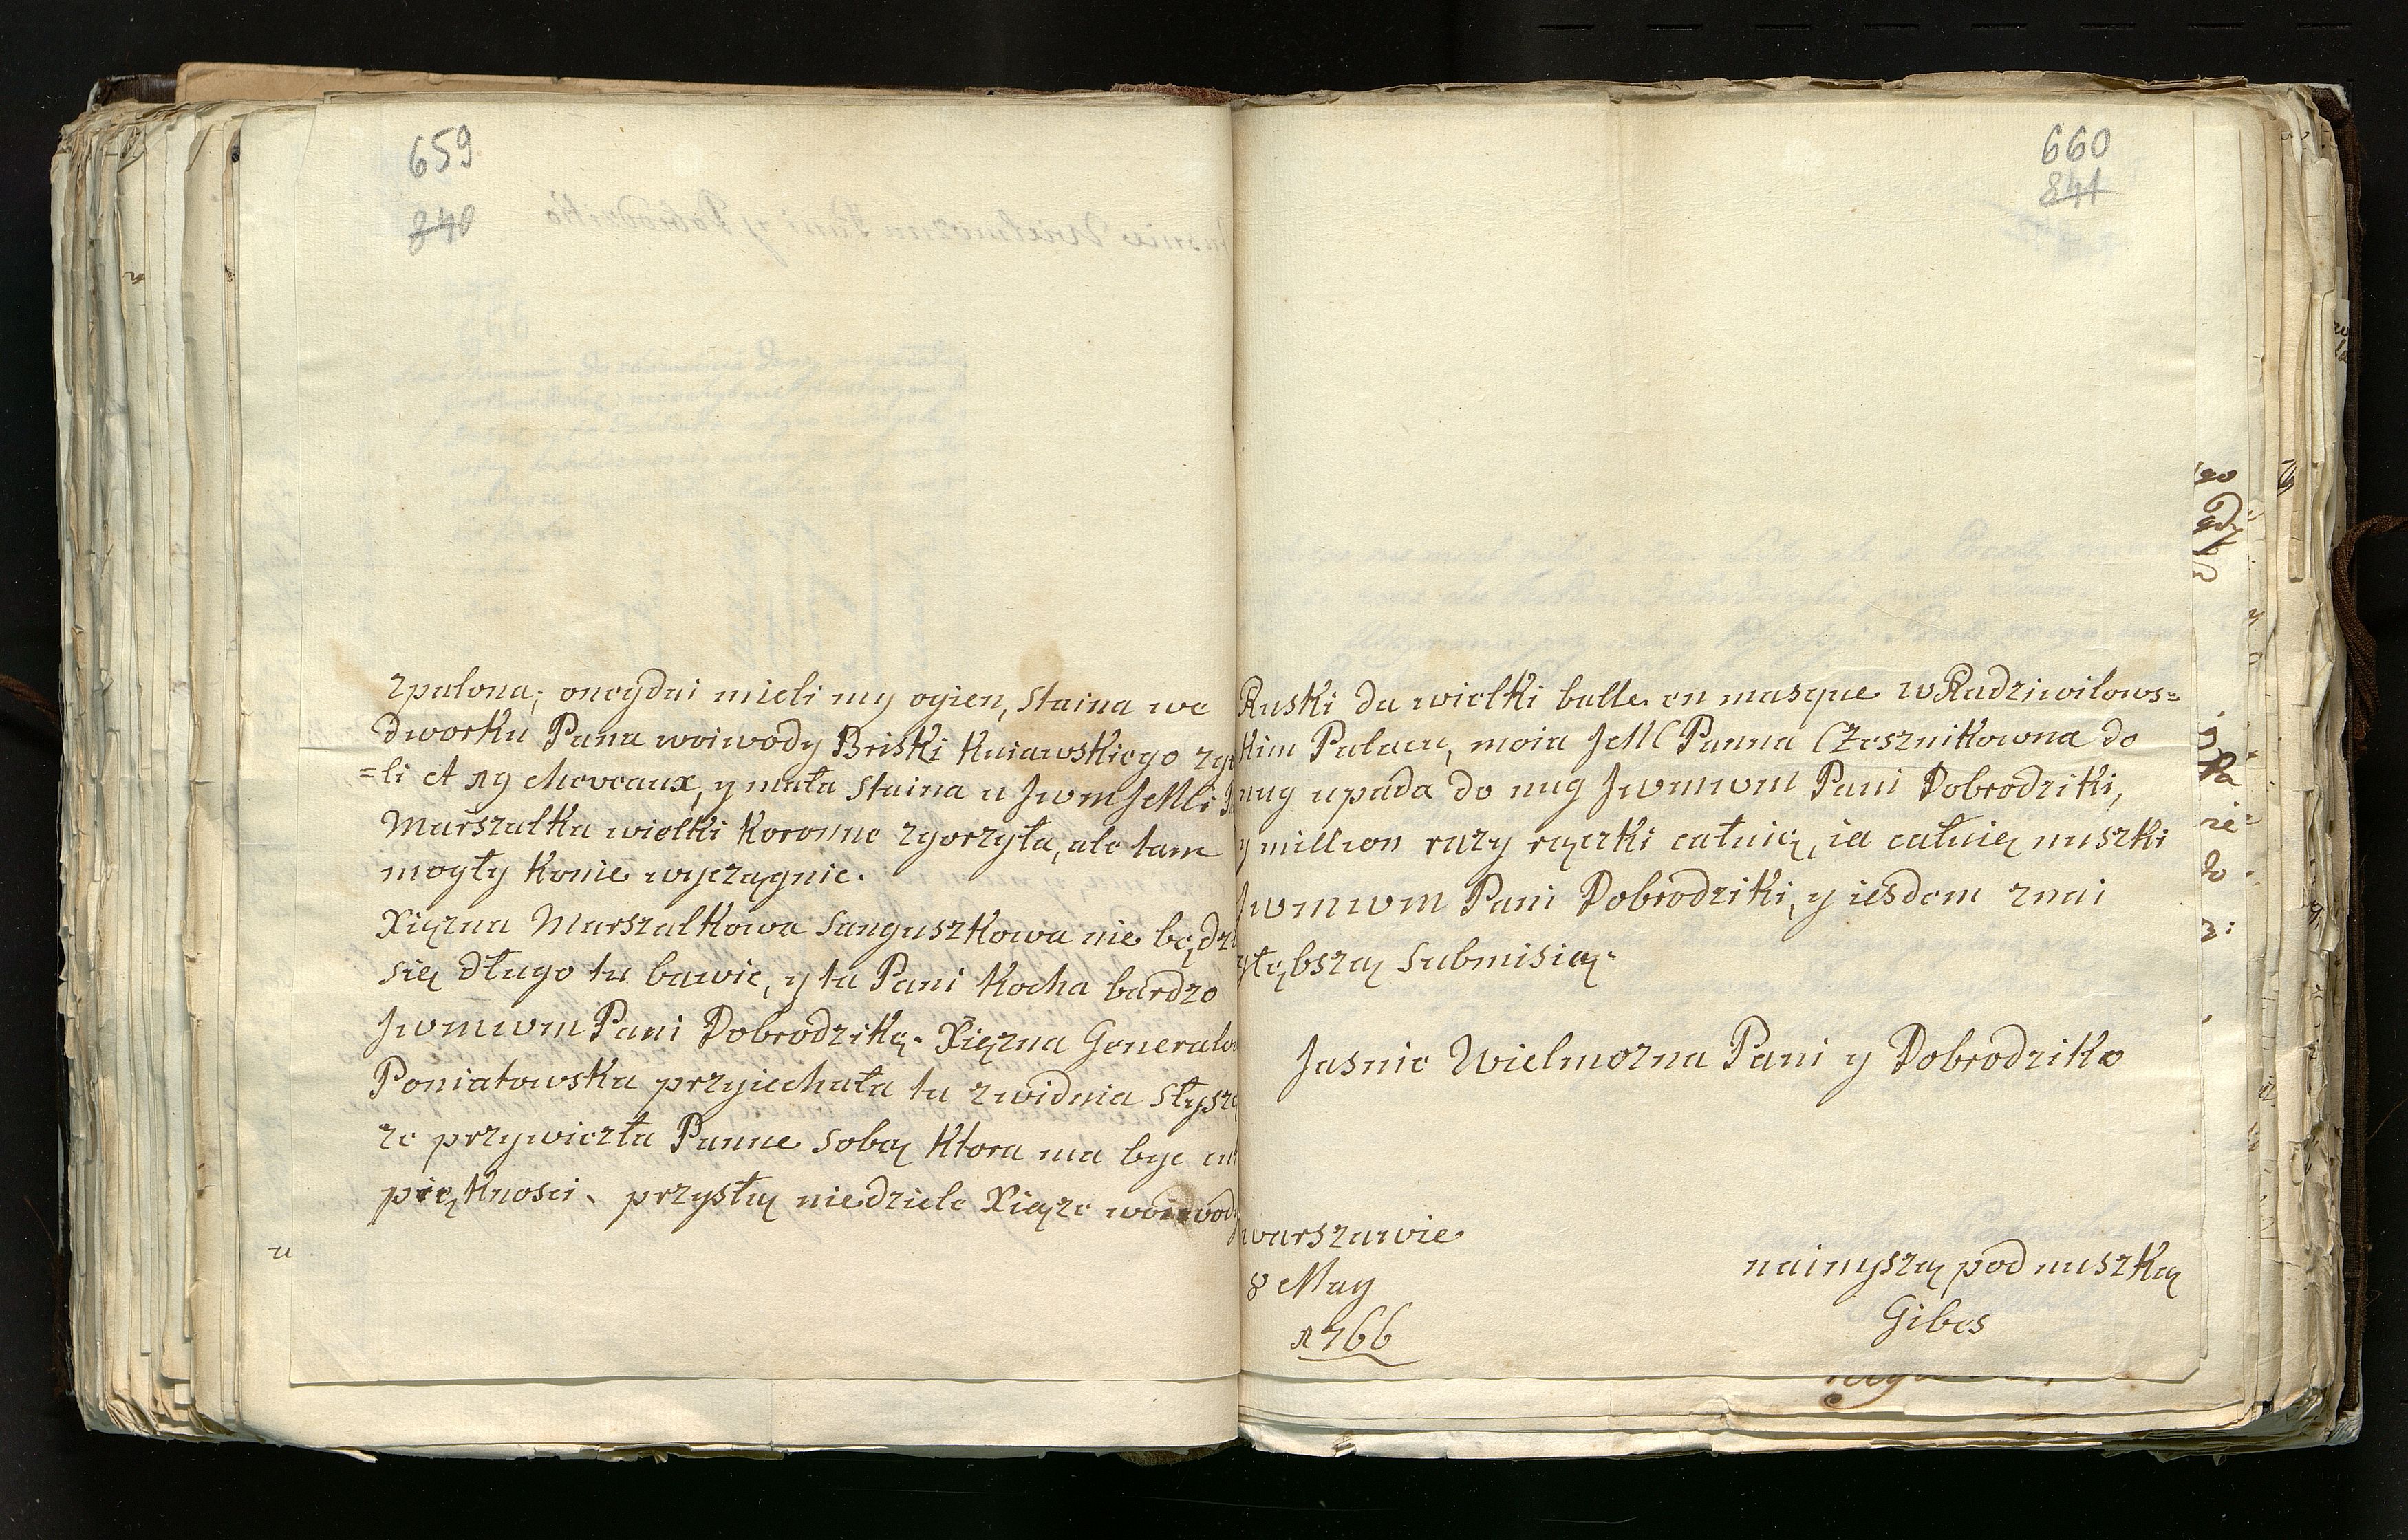 659
840
zpalona; onegdai mieli my ogien, staina we
dworku Pana woiwody Briski Kuiawskiego
=li et 19 cheveaux, y mała staina u JwmJeMci
Marszalka wielki Koronne zgorzyła, ale tam
mogły konie wyczągnic.
Xięzna Marszalkowa Sanguszkowa nie będz
się długo tu bawic, y ta Pani kocha bardzo
Jwmwm Pani Dobrodzikę. Xięzna Generalow
Poniatowska przyiechała tu zwidnia słysz
ze przywiezła Panne sobą ktora ma byc
pięknosci. przysłą niedziele Xiąze woiewod
660
841
Ruski da wielki balle en masque w Radziwilows=
kim Palacu, moia JeMC Panna Czesznikowna do
nug upada do nug Jwmwm Pani Dobrodziki,
y million razy rączki całuię, ia całuię nuszki
Jwmwm Pani Dobrodziki, y iesdem znai
głębszą submisią.
Jasnie Wielmozna Pani y Dobrodziko
warszawie
8 May
1766
nainyszą podnuszką
Gibes